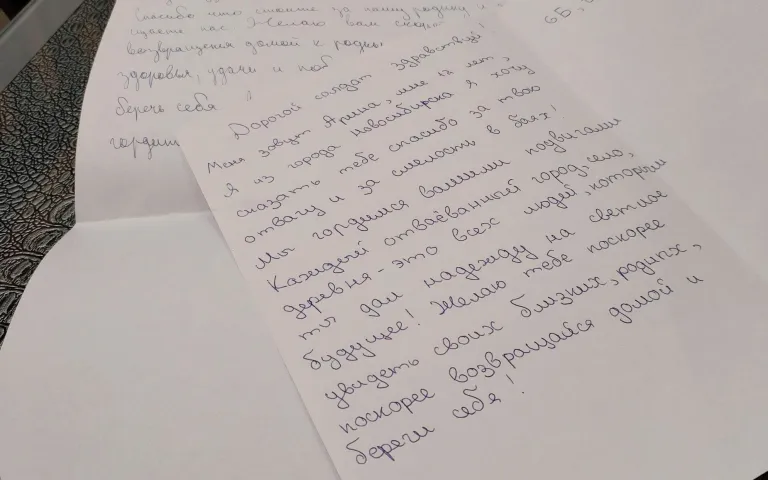 Спасибо что стоите за нашу родину и
щаете нас Желаю вам скоро
возвращения домой к родны
здоровья, удачи и поб
беречь себя
гордим
Дорогой солдат здравствуй!
Меня зовут Арина, мне 17 лет,
я из города Новосибирска я хочу
сказать тебе спасибо за твою
отвагу и за смелость в боях!
Мы гордимся вашими подвигами
Каждый отваёванный город, село,
деревня - это всех людей, которым
ты дал надежду на светлое
будущее! Желаю тебе поскорее
увидеть своих близких, родных,
поскорее возвращайся домой и
береги себя!